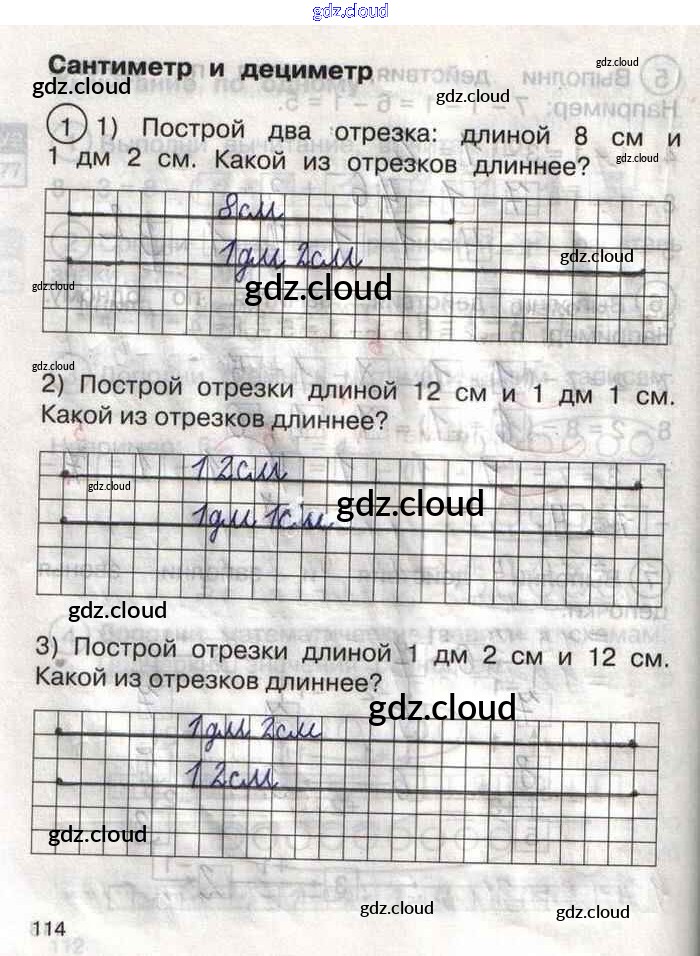 gdz.cloud
Сантиметр и дециметр
gdz.cloud
gdz.cloud
gdz.cloud
1 1) Построй два отрезка: длиной 8 см и
1 дм 2 см. Какой из отрезков длиннее?
gdz.cloud
8см
1дм 2см
gdz.cloud
gdz.cloud
gdz.cloud
gdz.cloud
2) Построй отрезки длиной 12 см и 1 дм 1 см.
Какой из отрезков длиннее?
12см
gdz.cloud
1дм 1см
gdz.cloud
gdz.cloud
3) Построй отрезки длиной 1 дм 2 см и 12 см.
Какой из отрезков длиннее?
gdz.cloud
1дм 2см
12см
gdz.cloud
gdz.cloud
gdz.cloud
114